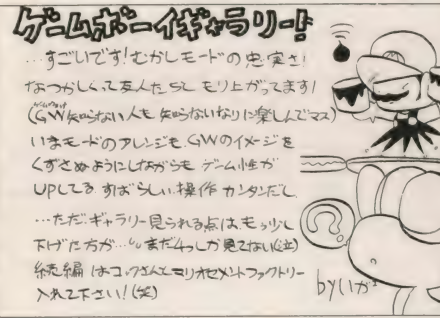 ゲームボーイギャラリー!!
…すごいです!むかしモードの忠実さ!
なつかしくって友人たちと モリ上がってます!
ゲームウォッチ
(GW知らない人も 知らないなりに楽しんでマス)
いまモードのアレンジも GWのイメージを
くずさぬようにしながらも ゲーム性が
UPしてる。すばらしい。操作 カンタンだし。
…ただ、ギャラリー見られる点は、もう少し
下げた方が… まだ4つしか見てない(泣)
続編はコックさんとマリオセメントファクトリー
入れて下さい!(笑)
byいが